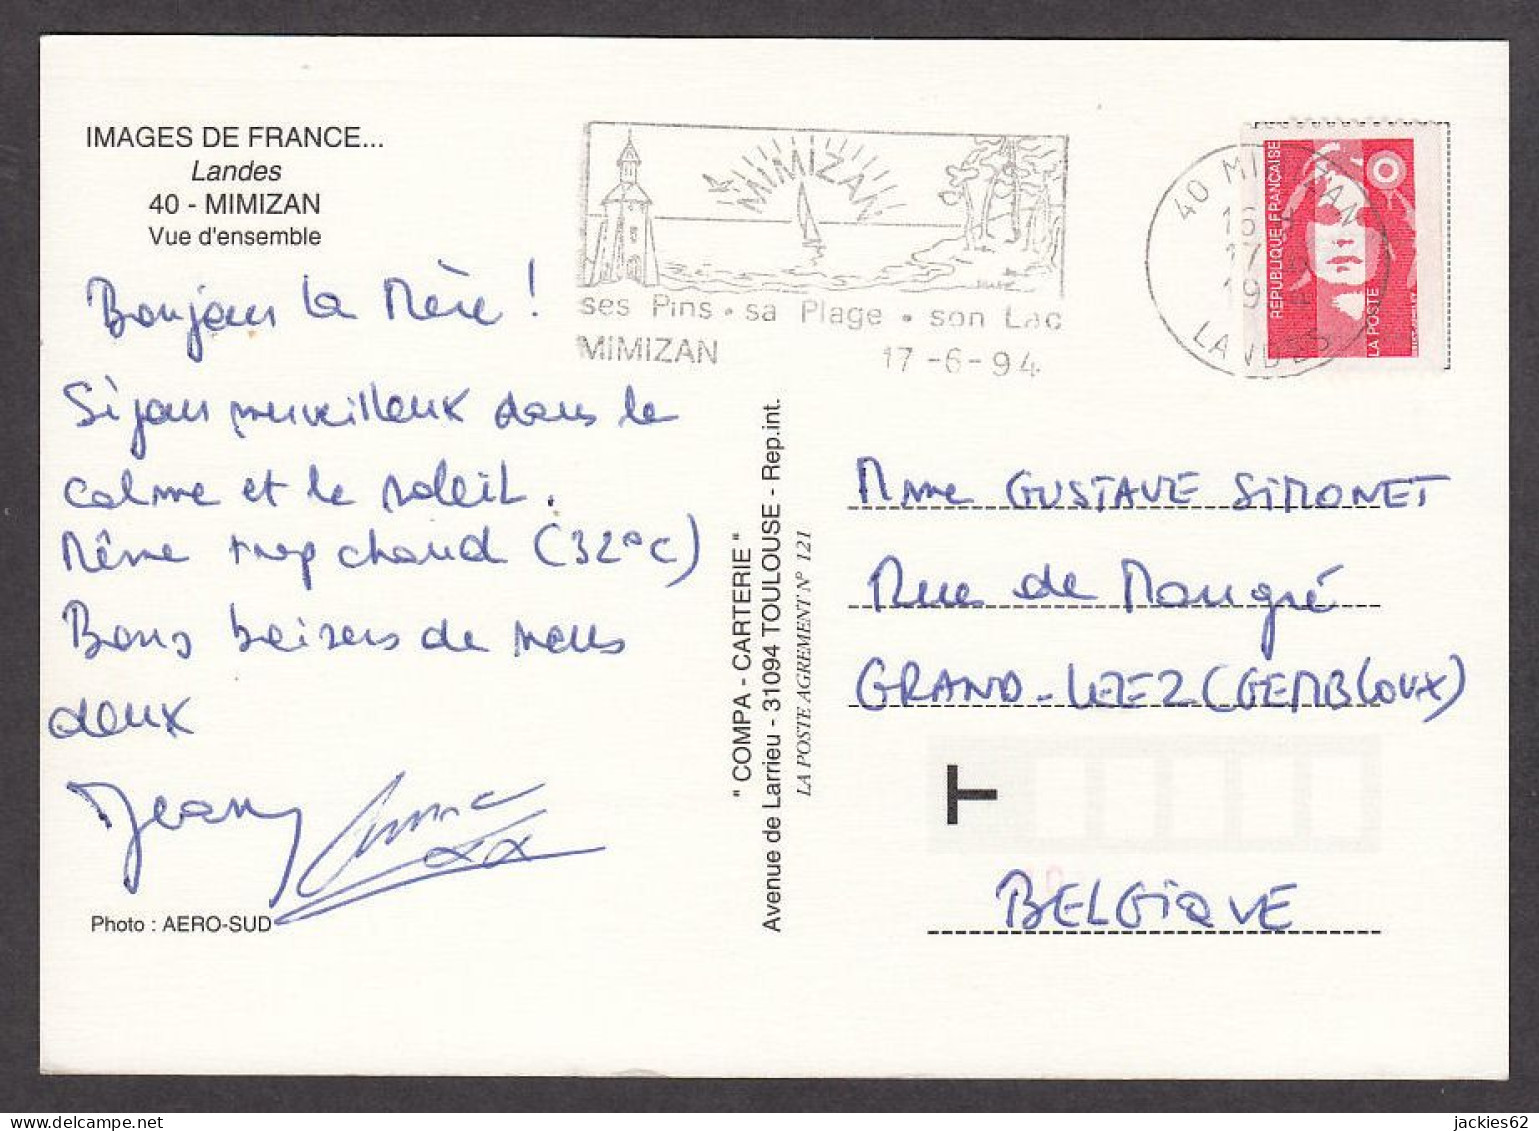 IMAGES DE FRANCE...
Landes
40 - MIMIZAN
Vue d'ensemble
Bonjour la Mère !
Séjour merveilleux dans le
calme et le soleil.
Même trop chaud (32°C)
Bons baisers de nous
deux
Jean Anne
Photo : AERO-SUD
MIMIZAN
ses Pins • sa Plage • son Lac
MIMIZAN 17-6-94
40 MIMIZAN
16
17
19
LANDES
REPUBLIQUE FRANÇAISE
LA POSTE
" COMPA - CARTERIE "
Avenue de Larrieu - 31094 TOULOUSE - Rep.int.
LA POSTE AGREMENT N° 121
Mme GUSTAVE SIMONET
Rue de Mougré
GRAND-LEEZ (GEMBLOUX)
T
BELGIQUE
jackies62